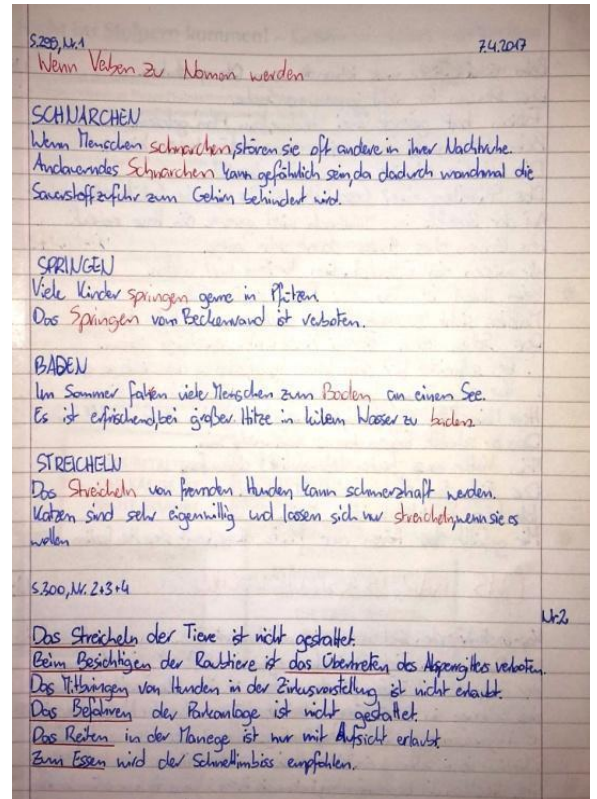 S.299, Nr.1 7.4.2017
Wenn Verben zu Nomen werden
SCHNARCHEN
Wenn Menschen schnarchen, stören sie oft andere in ihrer Nachtruhe.
Andauerndes Schnarchen kann gefährlich sein, da dadurch manchmal die
Sauerstoffzufuhr zum Gehirn behindert wird.
SPRINGEN
Viele Kinder springen gerne in Pfützen.
Das Springen vom Beckenrand ist verboten.
BADEN
Im Sommer fahren viele Menschen zum Baden an einem See.
Es ist erfrischend, bei großer Hitze in kühlem Wasser zu baden.
STREICHELN
Das Streicheln von fremden Hunden kann schmerzhaft werden.
Katzen sind sehr eigenwillig und lassen sich nur streicheln, wenn sie es
wollen
S.300, Nr. 2+3+4
Nr.2
Das Streicheln der Tiere ist nicht gestattet.
Beim Besichtigen der Raubtiere ist das Übertreten des Absperrgitters verboten.
Das Mitbringen von Hunden in der Zirkusvorstellung ist nicht erlaubt.
Das Befahren der Parkanlage ist nicht gestattet.
Das Reiten in der Manege ist nur mit Aufsicht erlaubt.
Zum Essen wird der Schnellimbiss empfohlen.